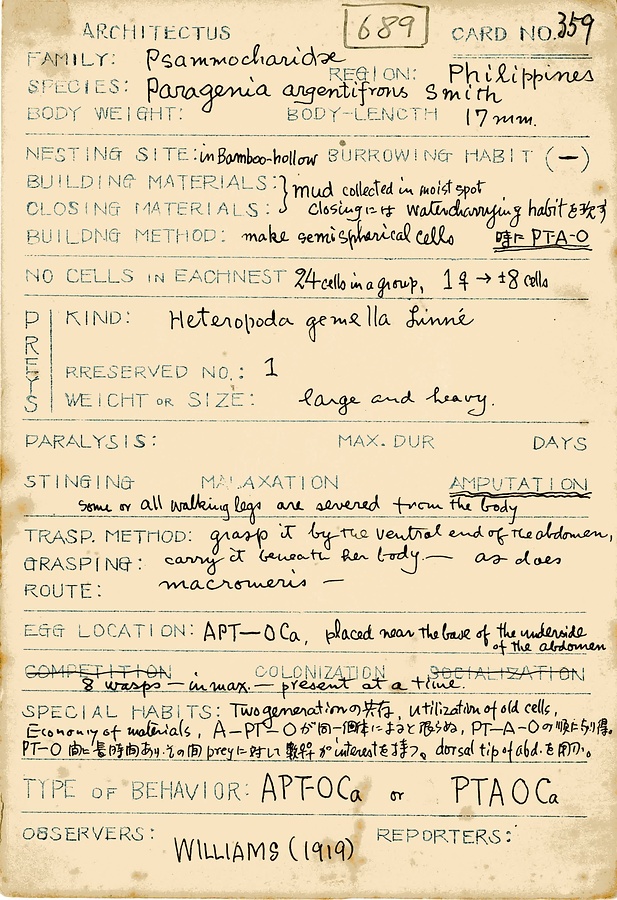 ARCHITECTUS 689 CARD NO. 359
FAMILY: Psammocharidae
REGION: Philippines
SPECIES: Paragenia argentifrons Smith
BODY WEIGHT: BODY-LENGTH 17 mm.
NESTING SITE: in Bamboo-hollow BURROWING HABIT (—)
BUILDING MATERIALS: } mud collected in moist spot
CLOSING MATERIALS: closingには watercarrying habitを欠く
BUILDNG METHOD: make semispherical cells 時に PT-A-O
NO CELLS IN EACHNEST 24 cells in a group, 1♀ → ±8 cells
PREYS
KIND: Heteropoda gemella Linné
RRESERVED NO.: 1
WEICHT OR SIZE: large and heavy.
PARALYSIS: MAX. DUR DAYS
STINGING MALAXATION AMPUTATION
some or all walking legs are severed from the body
TRASP. METHOD: grasp it by the ventral end of the abdomen,
GRASPING: carry it beneath her body. — as does
ROUTE: macromeris —
EGG LOCATION: APT—OCa, placed near the base of the underside
of the abdomen
COMPETITION COLONIZATION SOCIALIZATION
8 wasps — in max. — present at a time.
SPECIAL HABITS: Two generationの共存, utilization of old cells,
Economy of materials, A—PT—Oが同一個体によると限らぬ, PT—A—Oの順にもなり得る。
PT-O 間に長時間あり、その間 preyに対して数匹がinterestを持つ。dorsal tip of abd. を用ひ。
TYPE OF BEHAVIOR: APT-OCa or PTAOCa
OBSERVERS: WILLIAMS (1919) REPORTERS: